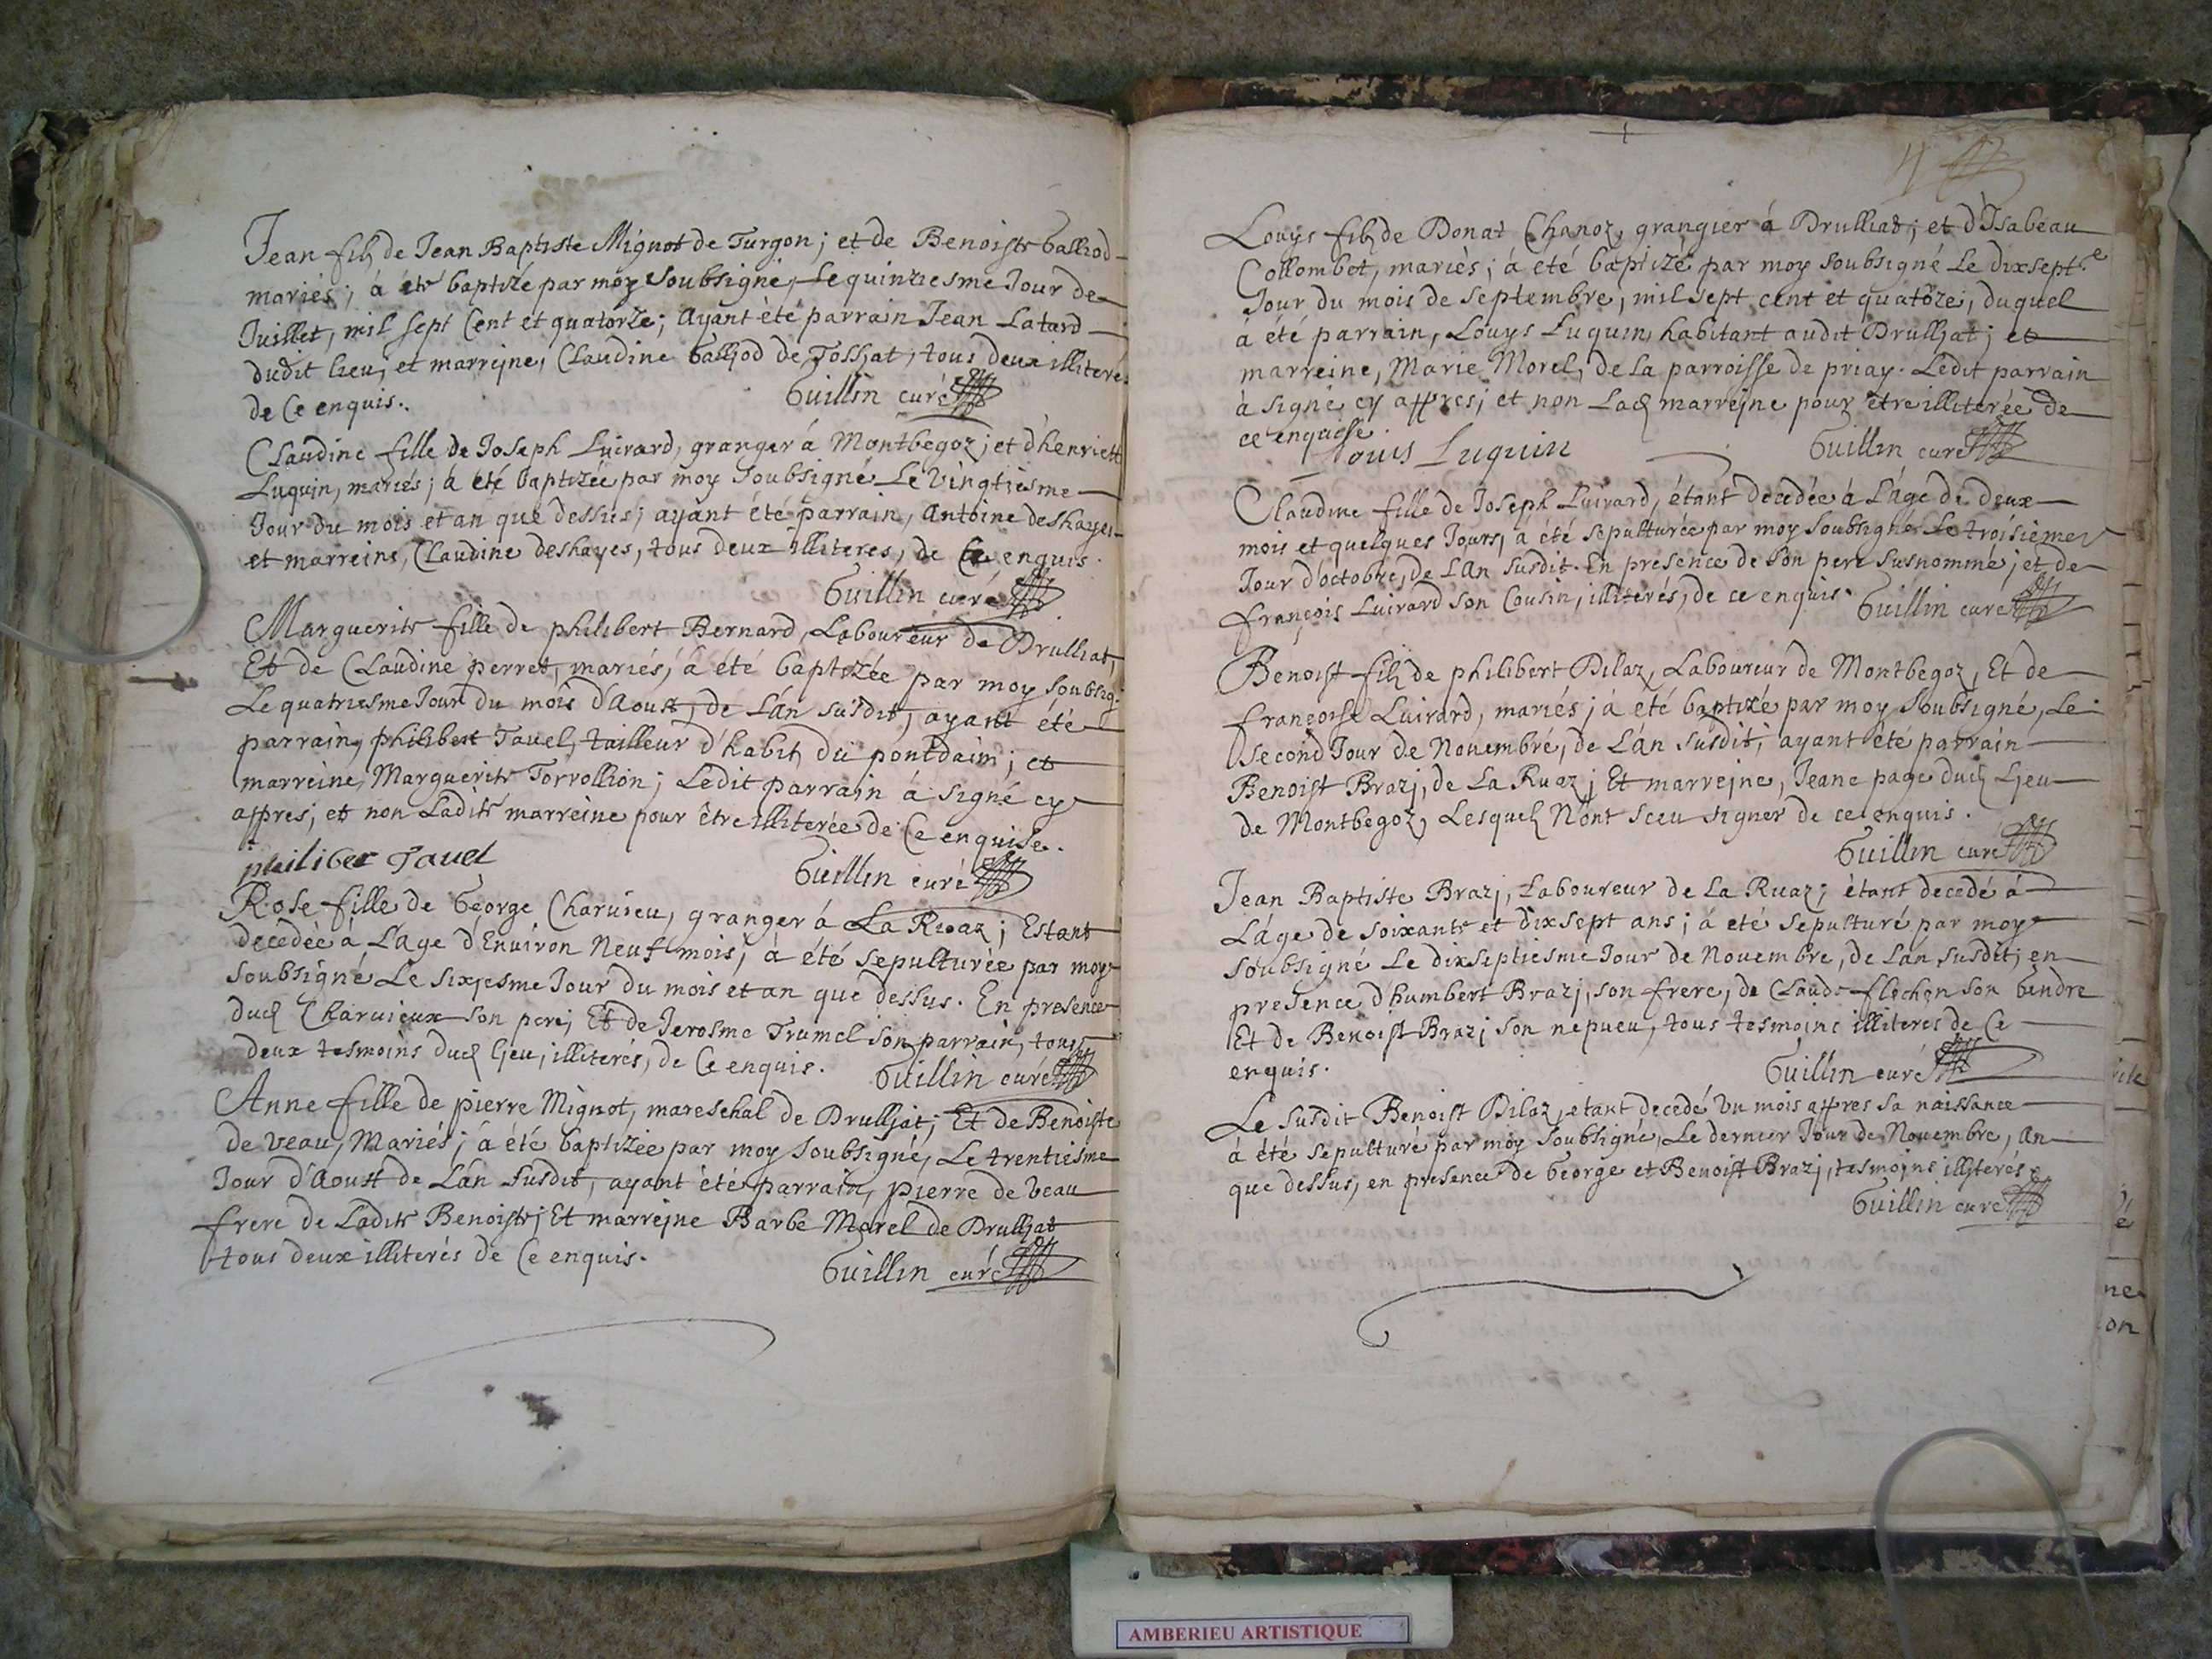 Jean filz de Jean Baptiste Mignot de Turgon; et de Benoiste Galliod
mariés; à été baptizé par moy soubsigné, Le quinziesme Jour de
Juillet, mil sept Cent et quatorze; Ayant été parrain Jean Latard
dudit lieu; et marrejne, Claudine Galljod de Tossjat, tous deux illiterés
de Ce enquis.
Guillin curé
Claudine fille de Joseph Luirard, granger à Montbegoz; et d'henriett
Luquin, mariés; à été baptizée par moy soubsigné Le vingtiesme
Jour du mois et an que dessus; ayant été parrain, Antoine deshayes
et marreine, Claudine deshayes, tous deux illiteres, de Ce enquis.
Guillin curé
Marguerite fille de philibert Bernard, Laboureur de Drulliat,
Et de Claudine perret, mariés, à été baptizée par moy soubsig.
Le quatriesme Jour du mois d'Aoust, de L'an susdit, ayant été
parrain, philibert Tavel, tailleur d'habits du pontdain; et
marreine, Marguerite Torrollion; Ledit parrain à signé cy
appres, et non Ladite marreine pour être illiterée de Ce enquise.
philiber Tavel
Guillin curé
Rose fille de George Charuieu, granger à La Ruaz; Estant
decedée à L'age d'Enuiron Neuf mois, à été sepulturée par moy
soubsigné Le sixjesme Jour du mois et an que dessus. En presence
dud Charuieux son pere; Et de Jerosme Trumel son parrain, tous
deux tesmoins dud ljeu, illiterés, de Ce enquis.
Guillin curé
Anne fille de pierre Mignot, mareschal de Drulljat; Et de Benoiste
de veau, Mariés; à été baptizée par moy soubsigné, Le trentiesme
Jour d'Aoust de L'an susdit, ayant été parrain, pierre de veau
frere de Ladite Benoiste; Et marrejne Barbe Morel de Drulljat
tous deux illiterés de Ce enquis.
Guillin curé
Louys filz de Donat Chanoz, grangier à Drulliat; et d'Isabeau
Collombet, mariés; à été baptizé par moy soubsigné Le dixsept.e
Jour du mois de septembre, mil sept cent et quatôze; duquel
à été parrain, Louys Luquin, habitant audit Drulljat; et
marreine, Marie Morel, de La parroisse de priay. Ledit parrain
à signé cy appres; et non Lad marrejne pour être illiterée de
ce enquise.
Louis Luquin
Guillin curé
Claudine fille de Joseph Luirard, étant decedée à L'age de deux
mois et quelques Jours, à été sepulturée par moy soubsigné Le troisieme
Jour d'octobre, de L'an susdit. En presence de son pere susnommé; et de
françois Luirard son Cousin, illiterés, de ce enquis.
Guillin curé
Benoist filz de philibert Dilaz, Laboureur de Montbegoz, Et de
françoise Luirard, mariés; à été baptizé par moy soubsigné, Le
second Jour de Nouembre, de L'an susdit; ayant été parrain
Benoist Brazj, de La Ruaz; Et marrejne, Jeane page dud Ljeu
de Montbegoz, Lesquelz N'ont sceu signer de ce enquis.
Guillin curé
Jean Baptiste Brazj, Laboureur de La Ruaz; étant decedé à
L'age de soixante et dixsept ans; à eté sepulturé par moy
soubsigné Le dixseptiesme Jour de Nouembre, de L'an susdit; en
presence d'humbert Brazj, son frere, de Claude flechon son Gendre
Et de Benoist Brazj son nepueu, tous tesmoins illiteres de Ce
enquis.
Guillin curé
Le susdit Benoist Dilaz, etant decedé vn mois appres sa naissance
à été sepulturé par moy soubsigné, Le dernier Jour de Nouembre, An
que dessus, en presence de George et Benoist Brazj, tesmoins illjterés
Guillin curé
ne
on
AMBERIEU ARTISTIQUE